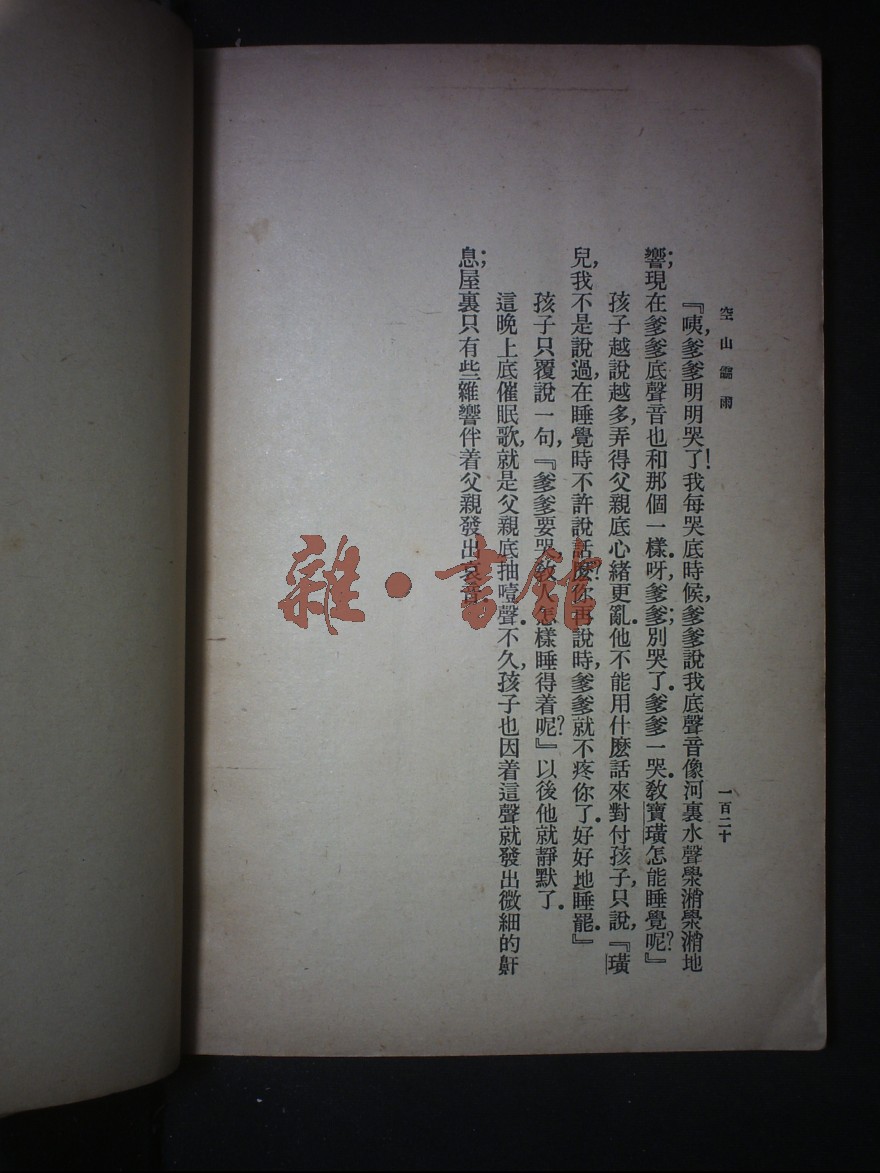 空山靈雨
一百二十
『咦，爹爹明明哭了！我每哭底時候，爹爹說我底聲音像河裏水聲澩潲澩潲地
響；現在爹爹底聲音也和那個一樣。呀，爹爹；別哭了。爹爹一哭，教寶璜怎能睡覺呢？』
孩子越說越多，弄得父親底心緒更亂。他不能用什麽話來對付孩子，只說，『璜
兒，我不是說過，在睡覺時不許說話麽？你再說時，爹爹就不疼你了。好好地睡罷。』
孩子只覆說一句，『爹爹要哭，教人怎樣睡得着呢？』以後他就靜默了。
這晚上底催眠歌，就是父親底抽噎聲。不久，孩子也因着這聲就發出微細的鼾
息；屋裏只有些雜響伴着父親發出哀音。
雜·書館